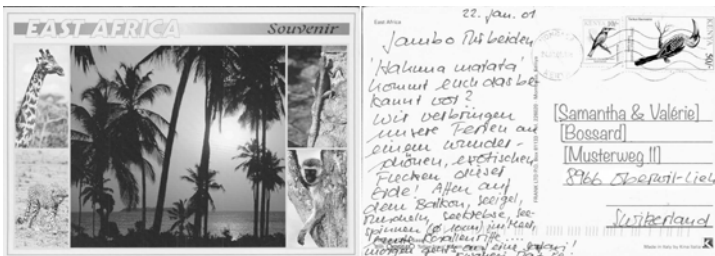 EAST AFRICA Souvenir
East Africa
22. Jan. 01
Jambo Ihr beiden
'Hakuna matata'
kommt euch das be
kannt vor?
Wir verbringen
unsere Ferien an
einem wunder-
schönen, exotischen
Flecken dieser
Erde! Affen auf
dem Balkon, Seeigel,
Muscheln, Seekrebse, See-
spinnen (ø 10cm) im Meer,
Korallenriffe....
morgen geht's auf eine Safari!
KENYA
KENYA
50/-
[Samantha & Valérie]
[Bossard]
[Musterweg 11]
8966 Oberwil-Lieli
Switzerland
Made in Italy by